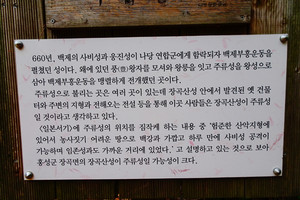 660년, 백제의 사비성과 웅진성이 나당 연합군에게 함락되자 백제부흥운동을
펼쳤던 성이다. 왜에 있던 풍(豊)왕자를 모셔와 왕통을 잇고 주류성을 왕성으로
삼아 백제부흥운동을 맹렬하게 전개했던 곳이다.
주류성으로 불리는 곳은 여러 곳이 있는데 장곡산성 안에서 발견된 옛 건물
터와 주변의 지형과 전해오는 전설 등을 통해 이곳 사람들은 장곡산성이 주류성
일 것이라고 생각하고 있다.
〈일본서기〉에 주류성의 위치를 짐작케 하는 내용 중 '험준한 산악지형에
있어서 농사짓기 어려운 땅으로 백강과 가깝고 하루 만에 사비성 공격이
가능하며 임존성과도 가까운 거리에 있었다.' 고 설명하고 있는 것으로 보아
홍성군 장곡면의 장곡산성이 주류성일 가능성이 크다.